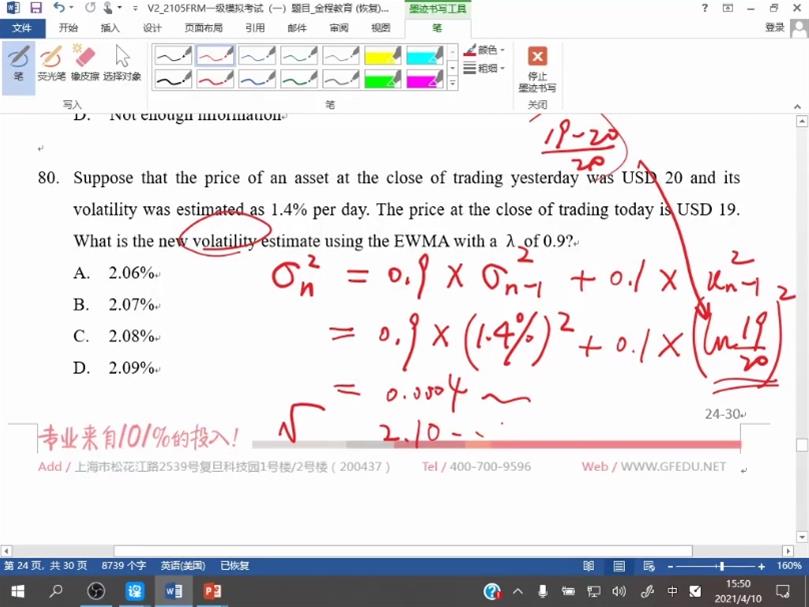 V2_2105FRM一级模拟考试（一）题目_金程教育 (恢复)...
墨迹书写工具
文件 开始 插入 设计 页面布局 引用 邮件 审阅 视图 笔 登录
笔 荧光笔 橡皮擦 选择对象
颜色
粗细
停止
墨迹书写
写入 笔 关闭
D. Not enough information
19-20
20
80. Suppose that the price of an asset at the close of trading yesterday was USD 20 and its
volatility was estimated as 1.4% per day. The price at the close of trading today is USD 19.
What is the new volatility estimate using the EWMA with a λ of 0.9?
A. 2.06%
B. 2.07%
C. 2.08%
D. 2.09%
σn² = 0.9 × σ²n-1 + 0.1 × u²n-1
= 0.9 × (1.4%)² + 0.1 × (ln 19/20)²
= 0.0004
√ 2.10--
24-30
专业来自101%的投入！
Add / 上海市松花江路2539号复旦科技园1号楼/2号楼（200437） Tel / 400-700-9596 Web / WWW.GFEDU.NET
第 24 页，共 30 页 8739 个字 英语(美国) 已恢复 160%
中 15:50
2021/4/10